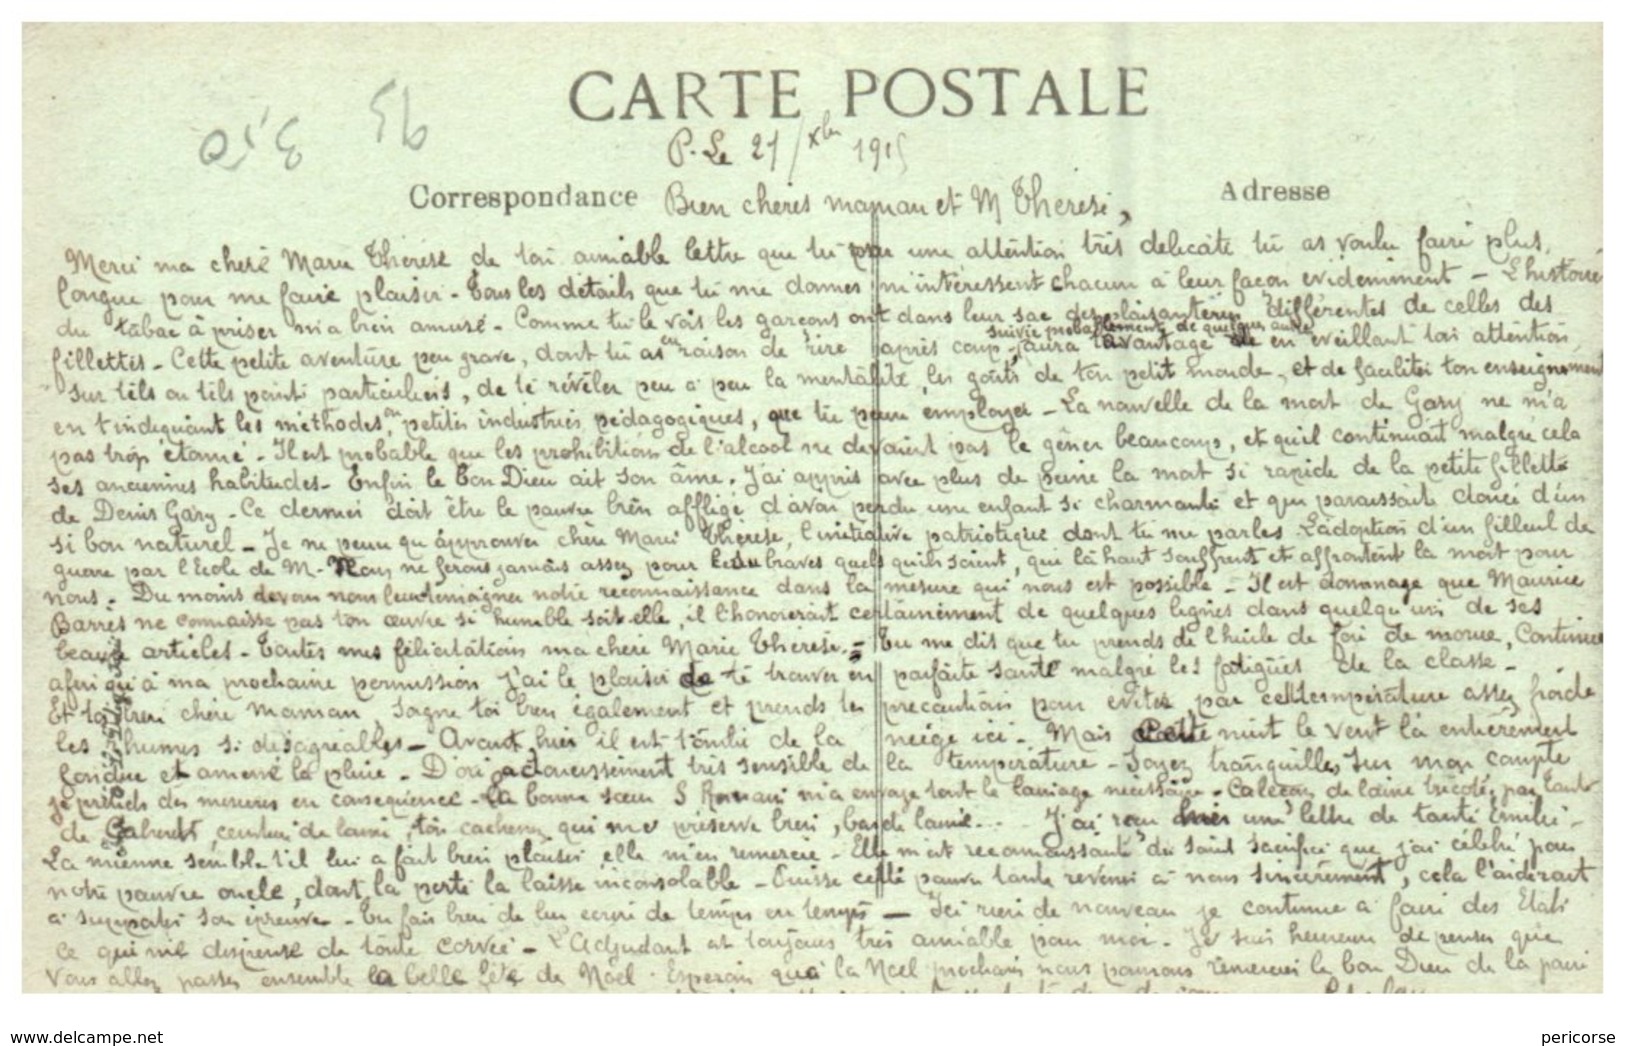 CARTE POSTALE
95
3,50
P. Le 21/Xbre 1915
Correspondance
Adresse
Bien chères maman et M Thérèse,
Merci ma chère Marie Thérèse de ton aimable lettre que tu par une attention très délicate tu as voulu faire plus
longue pour me faire plaisir - Tous les détails que tu me donnes m'intéressent chacun à leur façon évidemment - L'histoire
du tabac à priser m'a bien amusé - Comme tu le vois les garçons ont dans leur sac des plaisanteries différentes de celles des
suivie probablement de quelques autres
fillettes - Cette petite aventure peu grave, dont tu as eu raison de rire après coup, aura l'avantage en éveillant ton attention
sur tels ou tels points particuliers, de te révéler peu à peu la mentalité, les goûts de ton petit monde, et de faciliter ton enseignement
en t'indiquant les méthodes, ou petites industries pédagogiques, que tu peux employer - La nouvelle de la mort de Gary ne m'a
pas trop étonné - Il est probable que les prohibitions de l'alcool ne devaient pas le gêner beaucoup, et qu'il continuait malgré cela
ses anciennes habitudes - Enfin le bon Dieu ait son âme. J'ai appris avec plus de peine la mort si rapide de la petite fillette
de Denis Gary - Ce dernier doit être le pauvre bien affligé d'avoir perdu une enfant si charmante et qui paraissait douée d'un
si bon naturel - Je ne peux qu'approuver chère Marie Thérèse, l'initiative patriotique dont tu me parles. L'adoption d'un filleul de
guerre par l'Ecole de M - Nous ne ferons jamais assez pour les braves quels qu'ils soient, qui là haut souffrent et affrontent la mort pour
nous - Du moins devons nous leur témoigner notre reconnaissance dans la mesure qui nous est possible - Il est dommage que Maurice
Barrès ne connaisse pas ton œuvre si humble soit-elle, il l'honorerait certainement de quelques lignes dans quelqu'un de ses
beaux articles - Toutes mes félicitations ma chère Marie Thérèse. - Tu me dis que tu prends de l'huile de foie de morue, Continue
afin qu'à ma prochaine permission j'ai le plaisir de te trouver en parfaite santé malgré les fatigues de la classe -
Et toi bien chère Maman, soigne toi bien également et prends les précautions pour éviter par cette température assez froide
les rhumes si désagréables - Avant hier il est tombé de la neige ici - Mais cette nuit le vent l'a entièrement
fondue et amené la pluie - D'où adoucissement très sensible de la température - Soyez tranquilles, sur mon compte
je prends des mesures en conséquence - La bonne sœur S m'a envoyé tout le lainage nécessaire - Caleçon de laine tricoté, par tante
de ceinture de laine, ton cachenez qui me préserve bien, bas de laine... J'ai reçu hier une lettre de tante Emilie -
La mienne semble t'il lui a fait bien plaisir, elle m'en remercie - Elle m'est reconnaissante du saint sacrifice que j'ai célébré pour
notre pauvre oncle, dont la perte la laisse inconsolable - Puisse cette pauvre tante revenir à nous sincèrement, cela l'aiderait
à supporter son épreuve - Tu fais bien de lui écrire de temps en temps - Ici rien de nouveau je continue à faire des Etats
ce qui me dispense de toute corvée - L'Adjudant est toujours très aimable pour moi - Je suis heureux de penser que
vous allez passer ensemble la belle fête de Noël. Espérons qu'à la Noël prochaine nous pourrons remercier le bon Dieu de la paix
www.delcampe.net
pericorse